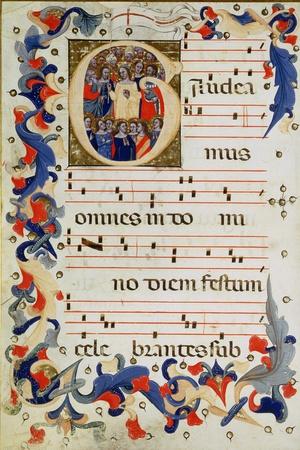 Gaudea
mus
omnes in do mi
no diem festum
cele brantes sub